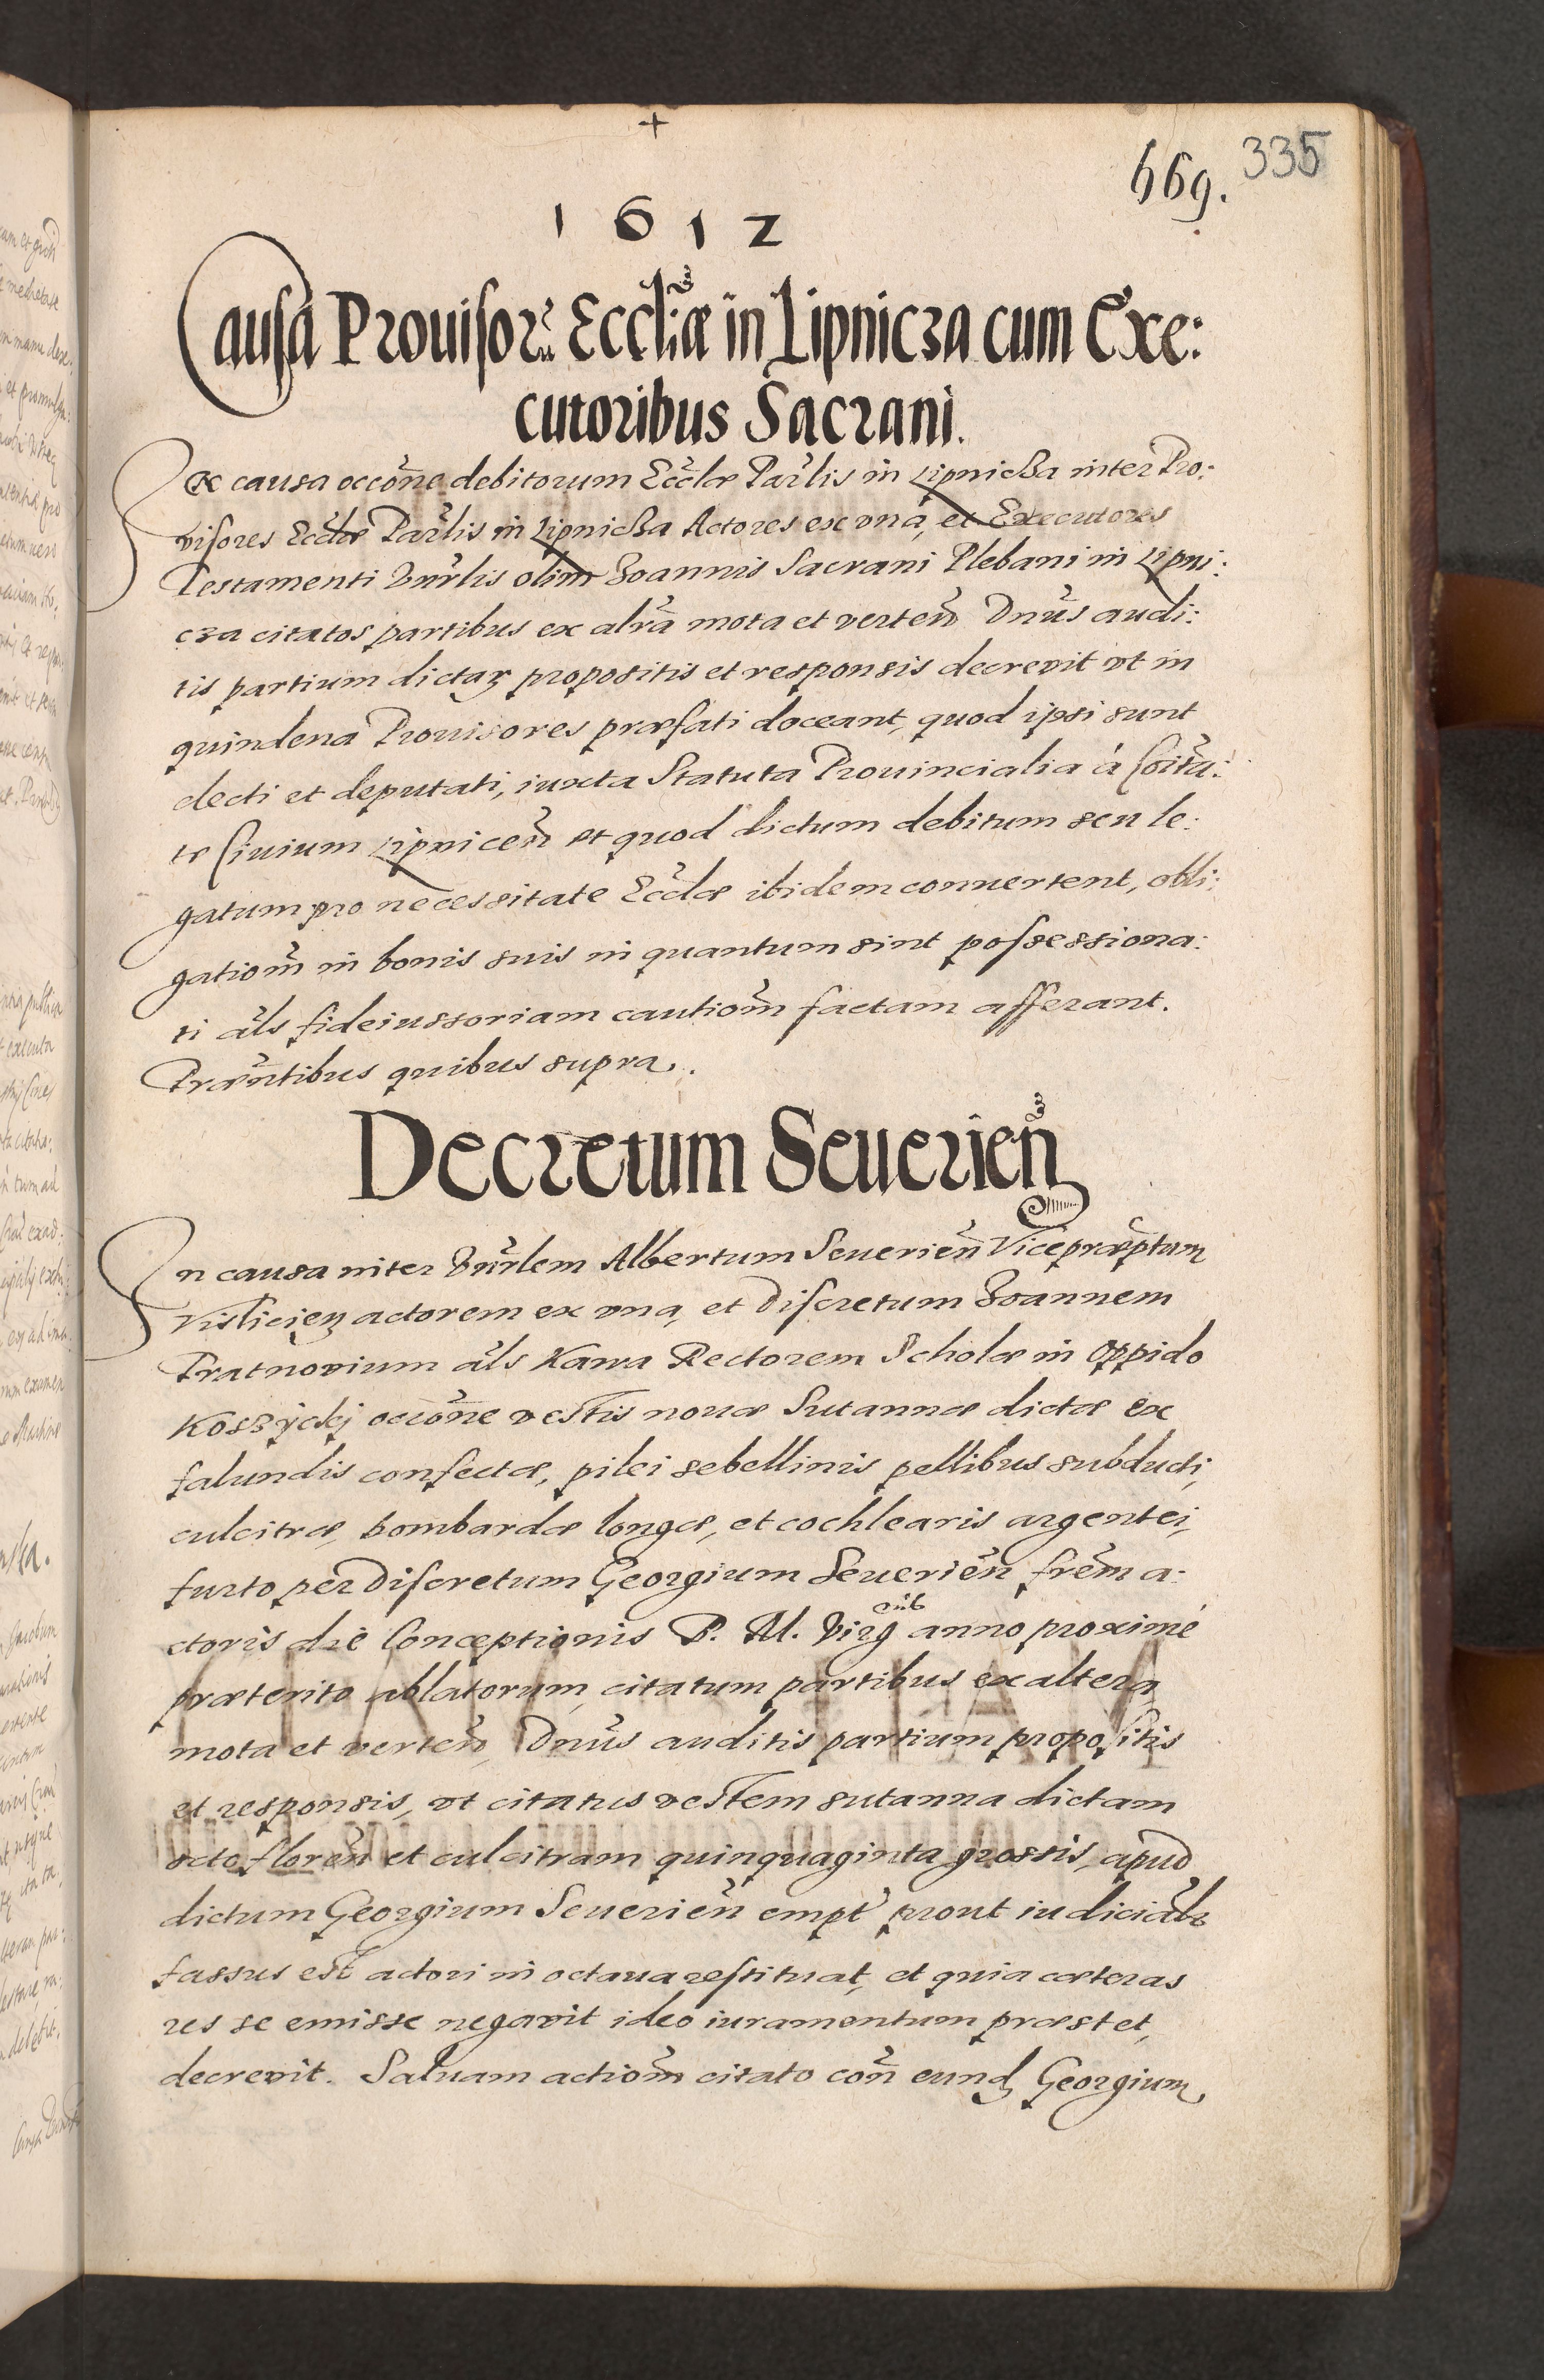 +
669. 335
1612
Causa Prouisorũ Eccliæ in Lipnicza cum Exe:
cutoribus Sacrani.
Ex causa occõne debitorum Ecclæ Parlis in Lipnicza inter Pro:
visores Ecclæ Parlis in Lipnicza Actores ex vna, et Executores
Testamenti Vnrlis olim Joannis Sacrani Plebani in Lipni:
cza citatos partibus ex alrã mota et verteñ Dnũs audi:
tis partium dictarz propositis et responsis decrevit vt in
quindena Prouisores præfati doceant, quod ipsi sunt
electi et deputati, iuxta Statuta Prouincialia à Coĩta:
te Ciuium Lipniceñ et quod dictum debitum seu le:
gatum pro necessitate Ecclæ ibidem conuertent, obli:
gationm̃ in bonis suis in quantum sint possessiona:
ti als fideiussoriam cautionm̃ factam afferant.
Præñtibus quibus supra.
Decretum Seuerieñ
In causa inter Vnrlem Albertum Seuerieñ Vicepræptum
Visliciep actorem ex vna, et discretum Joannem
Pratnovium als Kawa Rectorem Scholæ in Oppido
Koszyckj occõne vestis nouæ Sutannæ dictæ ex
falundis confectæ, pilei sebellinis pellibus subducti,
culcitræ, bombardæ longæ, et cochlearis argentei,
furto per discretum Georgium Seuerieñ frem̃ a:
ctoris die Conceptionis B. M. Virg anno proximè
præterito ablatorum, citatum partibus ex altera
mota et verteñ, Dnũs auditis partium propositis
et responsis, vt citatus vestem sutanna dictam
octo floreñ et culcitram quinquaginta grossis, apud
dictum Georgium Seuerieñ empt prout iudicialr
fassus est actori in octaua restituat, et quia cæteras
res se emisse negavit ideo iuramentum præstet,
decrevit. Saluam actionm̃ citato coñ eund Georgium